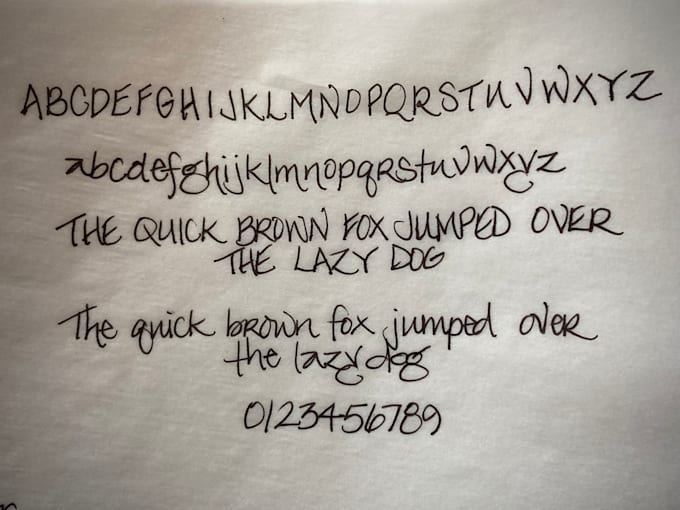 ABCDEFGHIJKLMNOPQRSTUVWXYZ
abcdefghijklmnopqrstuvwxyz
THE QUICK BROWN FOX JUMPED OVER
THE LAZY DOG
The quick brown fox jumped over
the lazy dog
0123456789